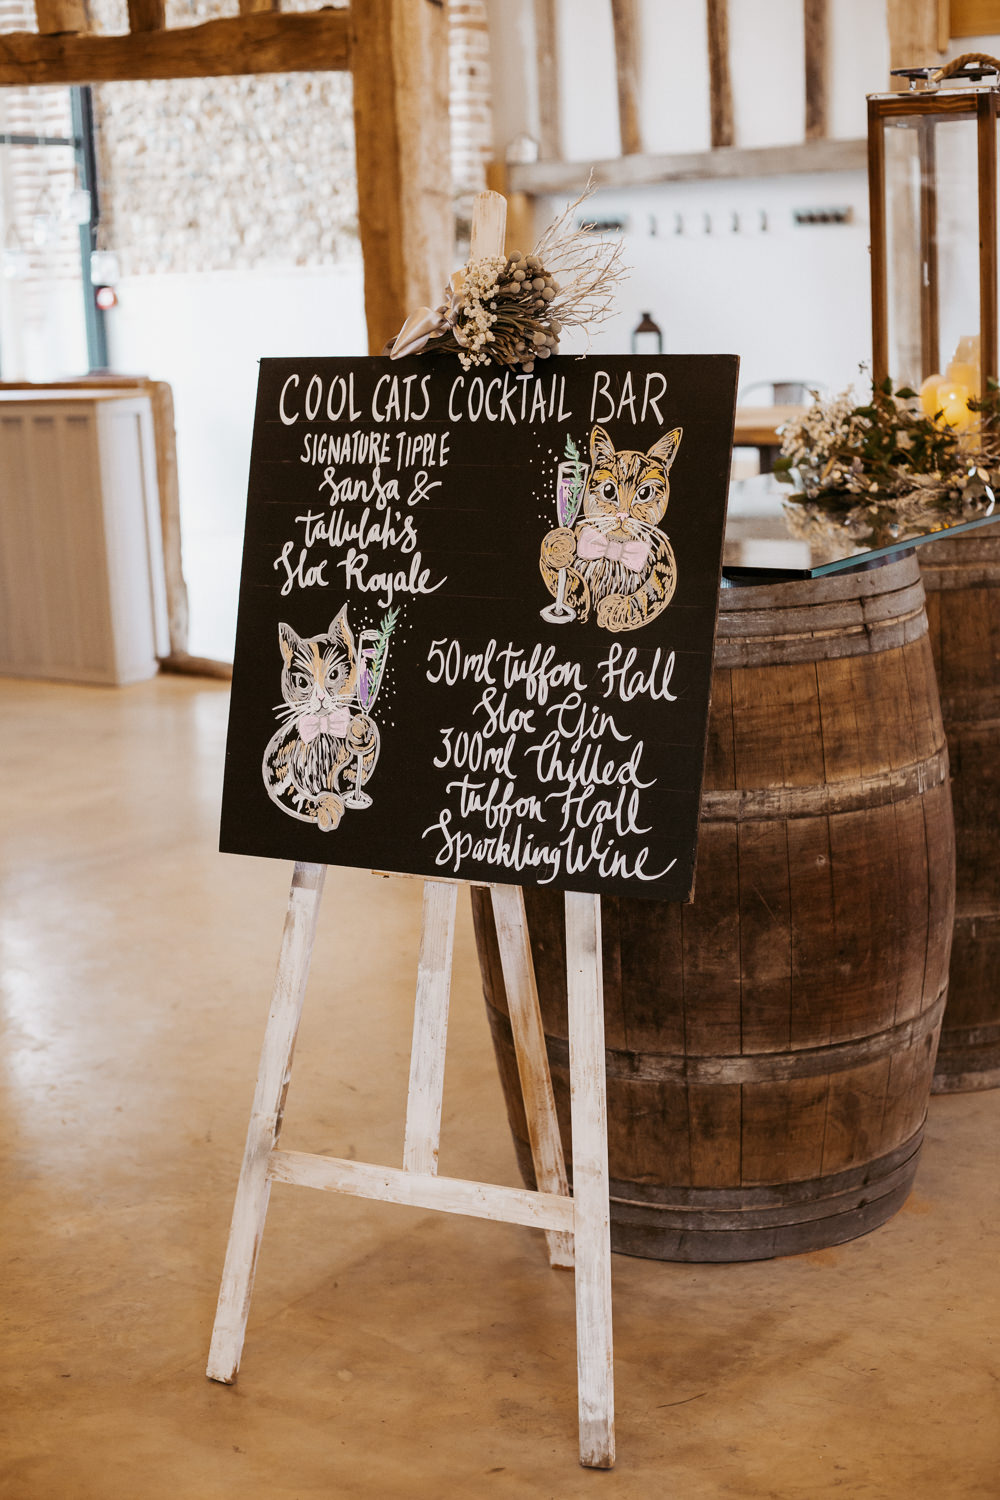 COOL CATS COCKTAIL BAR
SIGNATURE TIPPLE
Sansa &
Tallulah's
Sloe Royale
50ml Tuffon Hall
Sloe Gin
300ml Chilled
Tuffon Hall
Sparkling Wine